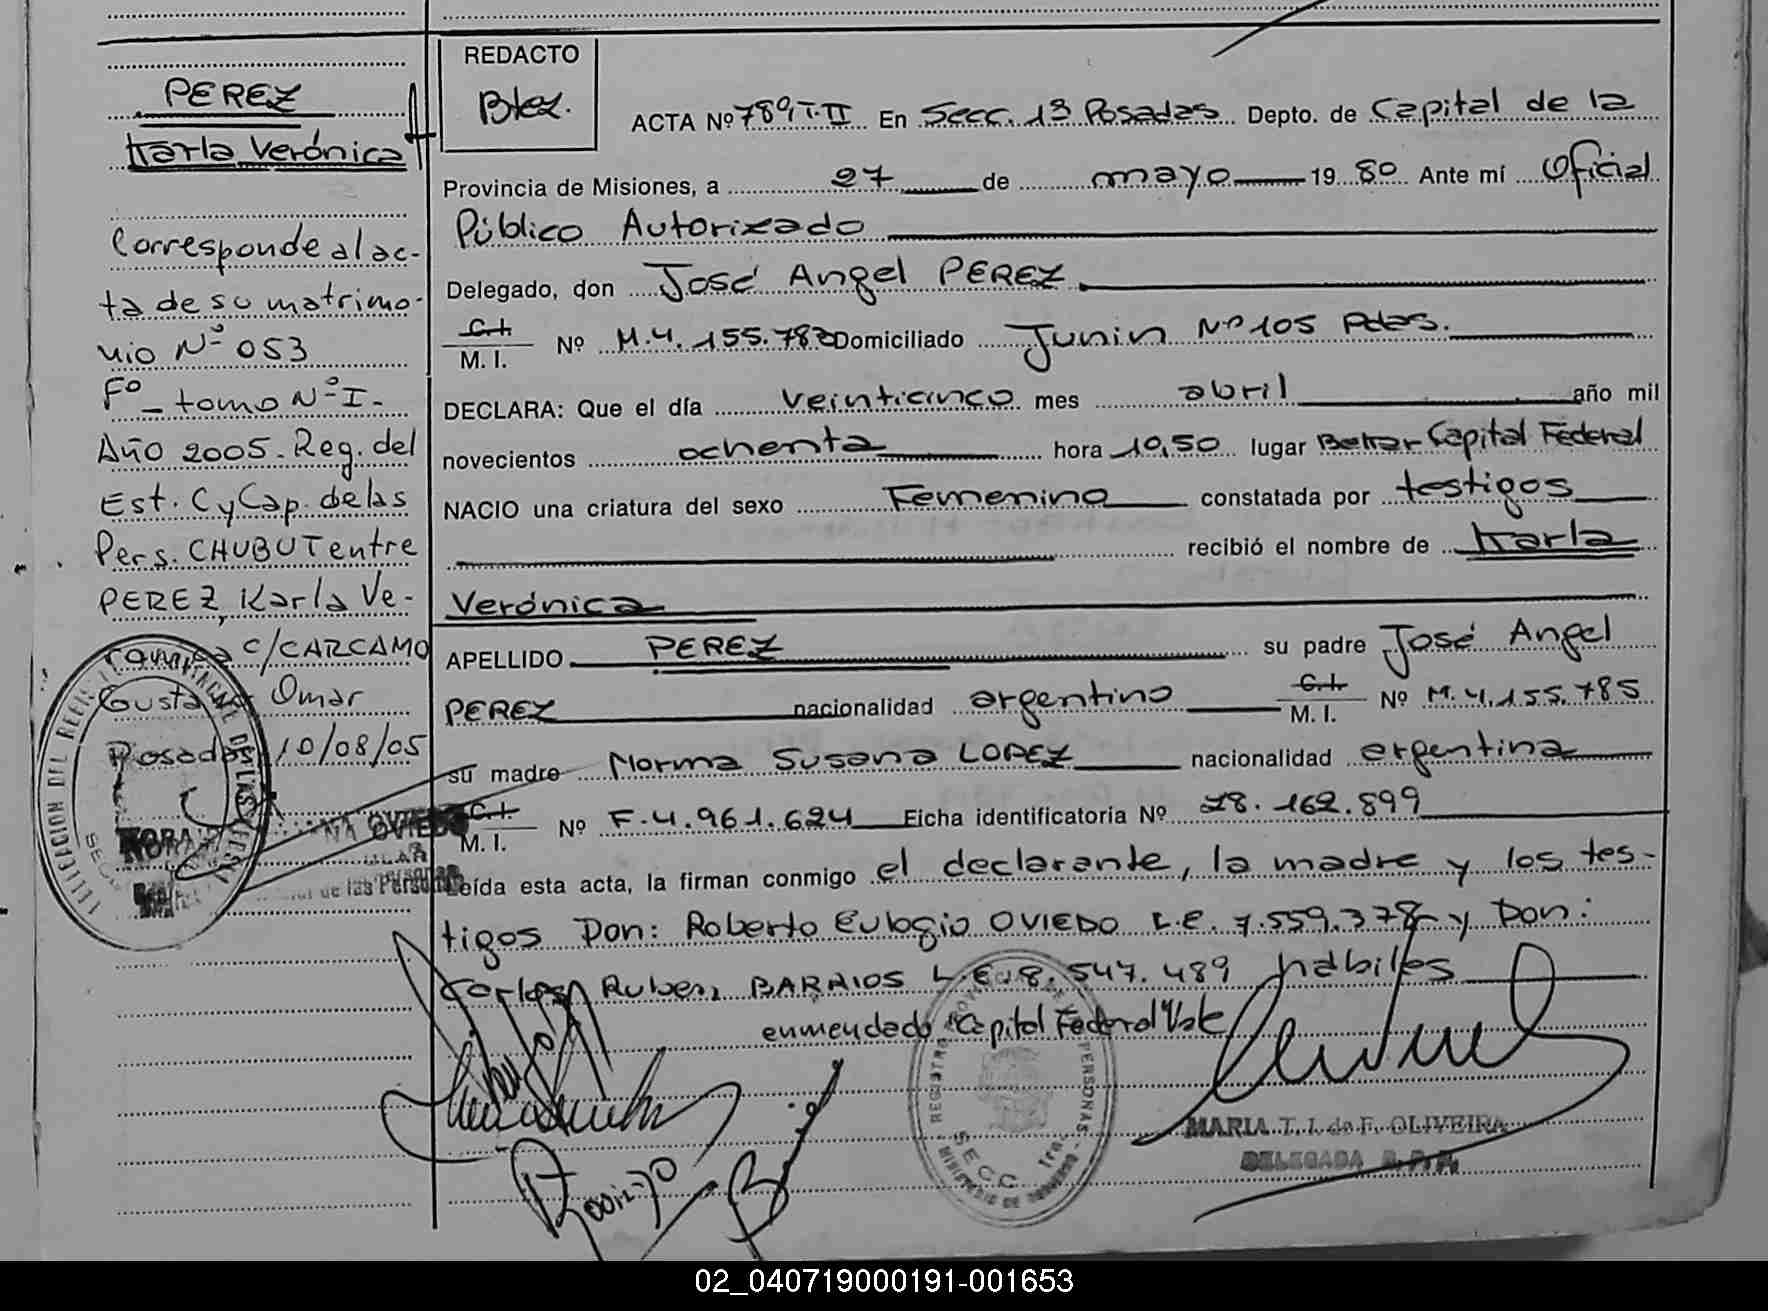 PEREZ
Karla Verónica
Corresponde al ac-
ta de su matrimo-
nio Nº 053
Fº _ tomo Nº I -
Año 2005. Reg. del
Est. C y Cap. de las
Pers. CHUBUT entre
PEREZ, Karla Ve-
c/CARCAMO
Gusta Omar
Posadas 10/08/05
REDACTO
Btez.
ACTA Nº 789 T-II En Secc. 1ª Posadas Depto. de Capital de la
Provincia de Misiones, a 27 de mayo 19 80 Ante mí Oficial
Público Autorizado
Delegado, don José Angel PEREZ
C.I.
M. I. Nº M.4.155.782 Domiciliado Junin Nº 105 Pdas.
DECLARA: Que el día veinticinco mes abril año mil
novecientos ochenta hora 10,50 lugar Capital Federal
NACIO una criatura del sexo Femenino constatada por testigos
recibió el nombre de Karla
Verónica
APELLIDO PEREZ su padre José Angel
PEREZ nacionalidad argentino C.I.
M. I. Nº M.4.155.785
su madre Norma Susana LOPEZ nacionalidad argentina
C.I.
M. I. Nº F.4.961.624 Ficha identificatoria Nº 28.162.899
Leída esta acta, la firman conmigo el declarante, la madre y los tes-
tigos Don: Roberto Eulogio OVIEDO L.E. 7.559.378 y Don:
Carlos Ruben BARRIOS L.E. 8.547.489 hábiles
enmendado "Capital Federal" Vale
MARIA T. I. de F. OLIVEIRA
DELEGADA R.P.P.
REGISTRO PROVINCIAL DE LAS PERSONAS
SECC 1ra.
MINISTERIO DE GOBIERNO
02_040719000191-001653